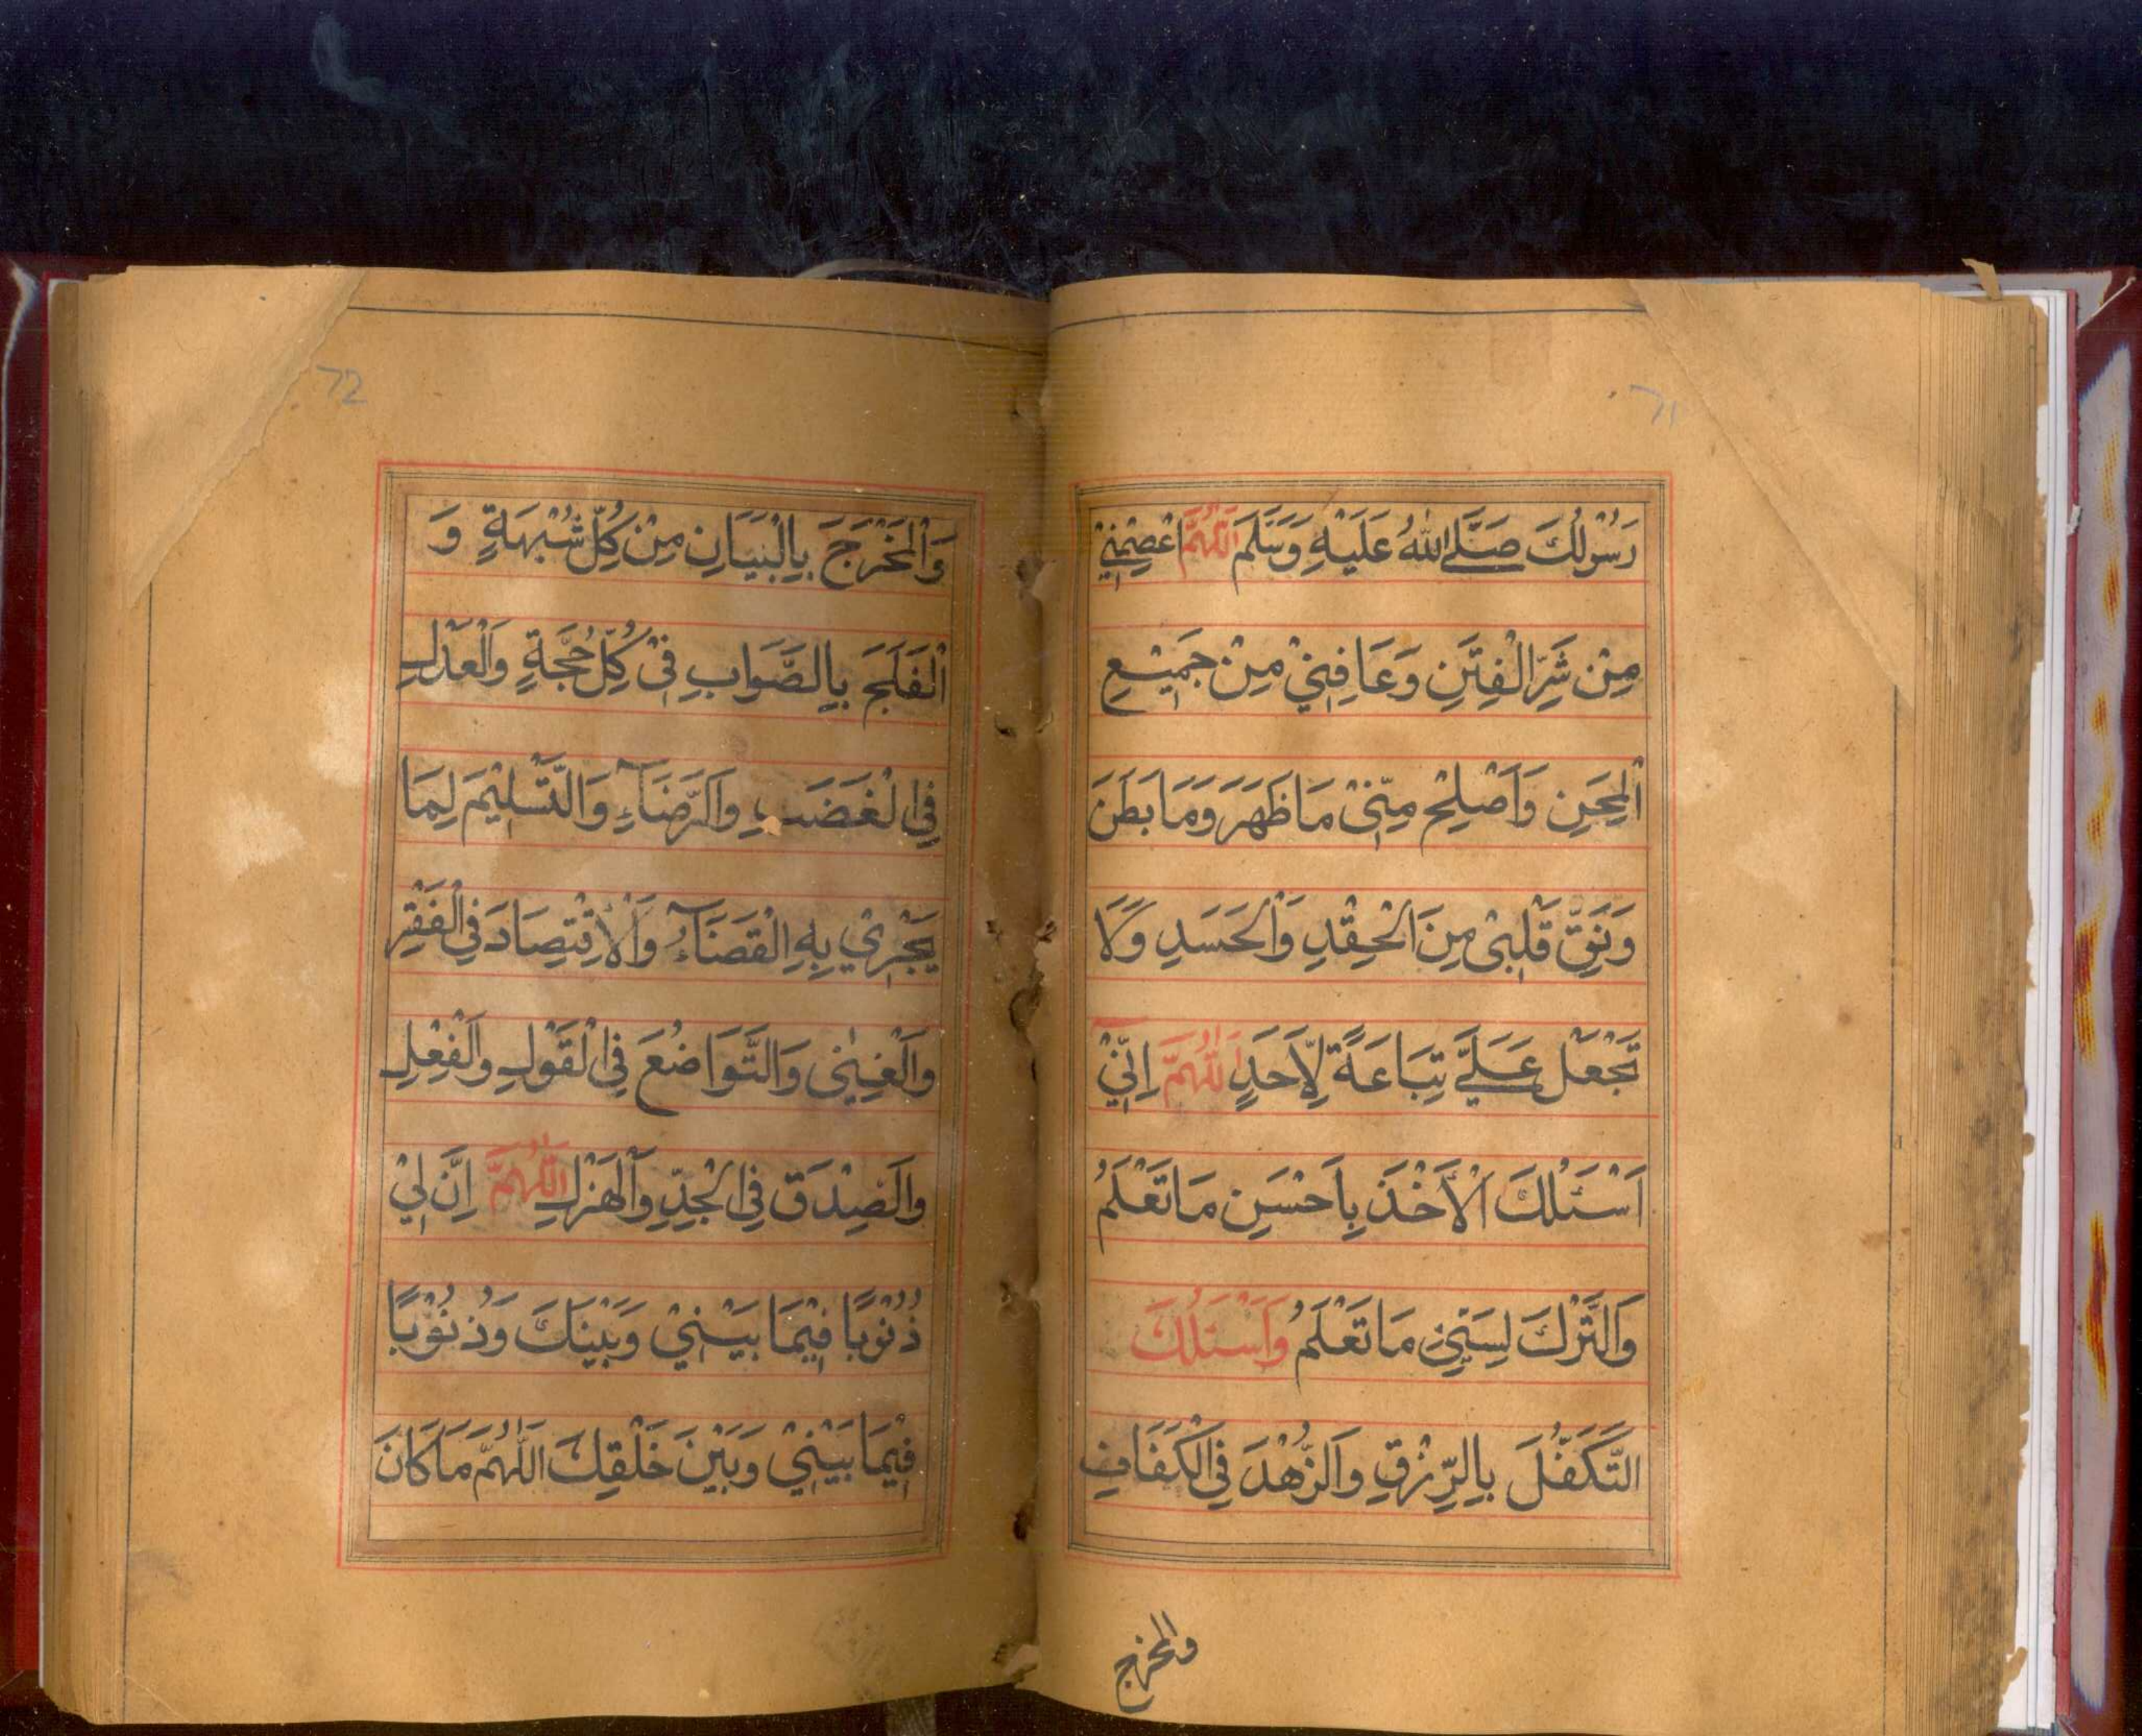 71
رَسُوْلِكَ صَلَّى اللهُ عَلَيْهِ وَسَلَّمَ اَللّٰهُمَّ اعْصِمْنِيْ
مِنْ شَرِّ الْفِتَنِ وَعَافِنِيْ مِنْ جَمِيْعِ
الْمِحَنِ وَاَصْلِحْ مِنِّيْ مَا ظَهَرَ وَمَا بَطَنَ
وَنَقِّ قَلْبِيْ مِنَ الْحِقْدِ وَالْحَسَدِ وَلَا
تَجْعَلْ عَلَيَّ تِبَاعَةً لِاَحَدٍ اَللّٰهُمَّ اِنِّيْ
اَسْئَلُكَ الْاَخْذَ بِاَحْسَنِ مَا تَعْلَمُ
وَالتَّرْكَ لِسَيِّئِ مَا تَعْلَمُ وَاَسْئَلُكَ
التَّكَفُّلَ بِالرِّزْقِ وَالزُّهْدَ فِي الْكَفَافِ
والمخرج
72
وَالْمَخْرَجَ بِالْبَيَانِ مِنْ كُلِّ شُبْهَةٍ وَ
الْفَلَجَ بِالصَّوَابِ فِيْ كُلِّ حُجَّةٍ وَالْعَدْلَ
فِي الْغَضَبِ وَالرَّضَآءِ وَالتَّسْلِيْمَ لِمَا
يَجْرِيْ بِهِ الْقَضَآءُ وَالْاِقْتِصَادَ فِي الْفَقْرِ
وَالْغِنٰى وَالتَّوَاضُعَ فِي الْقَوْلِ وَالْفِعْلِ
وَالصِّدْقَ فِي الْجِدِّ وَالْهَزْلِ اَللّٰهُمَّ اِنَّ لِيْ
ذُنُوْبًا فِيْمَا بَيْنِيْ وَبَيْنَكَ وَذُنُوْبًا
فِيْمَا بَيْنِيْ وَبَيْنَ خَلْقِكَ اَللّٰهُمَّ مَا كَانَ